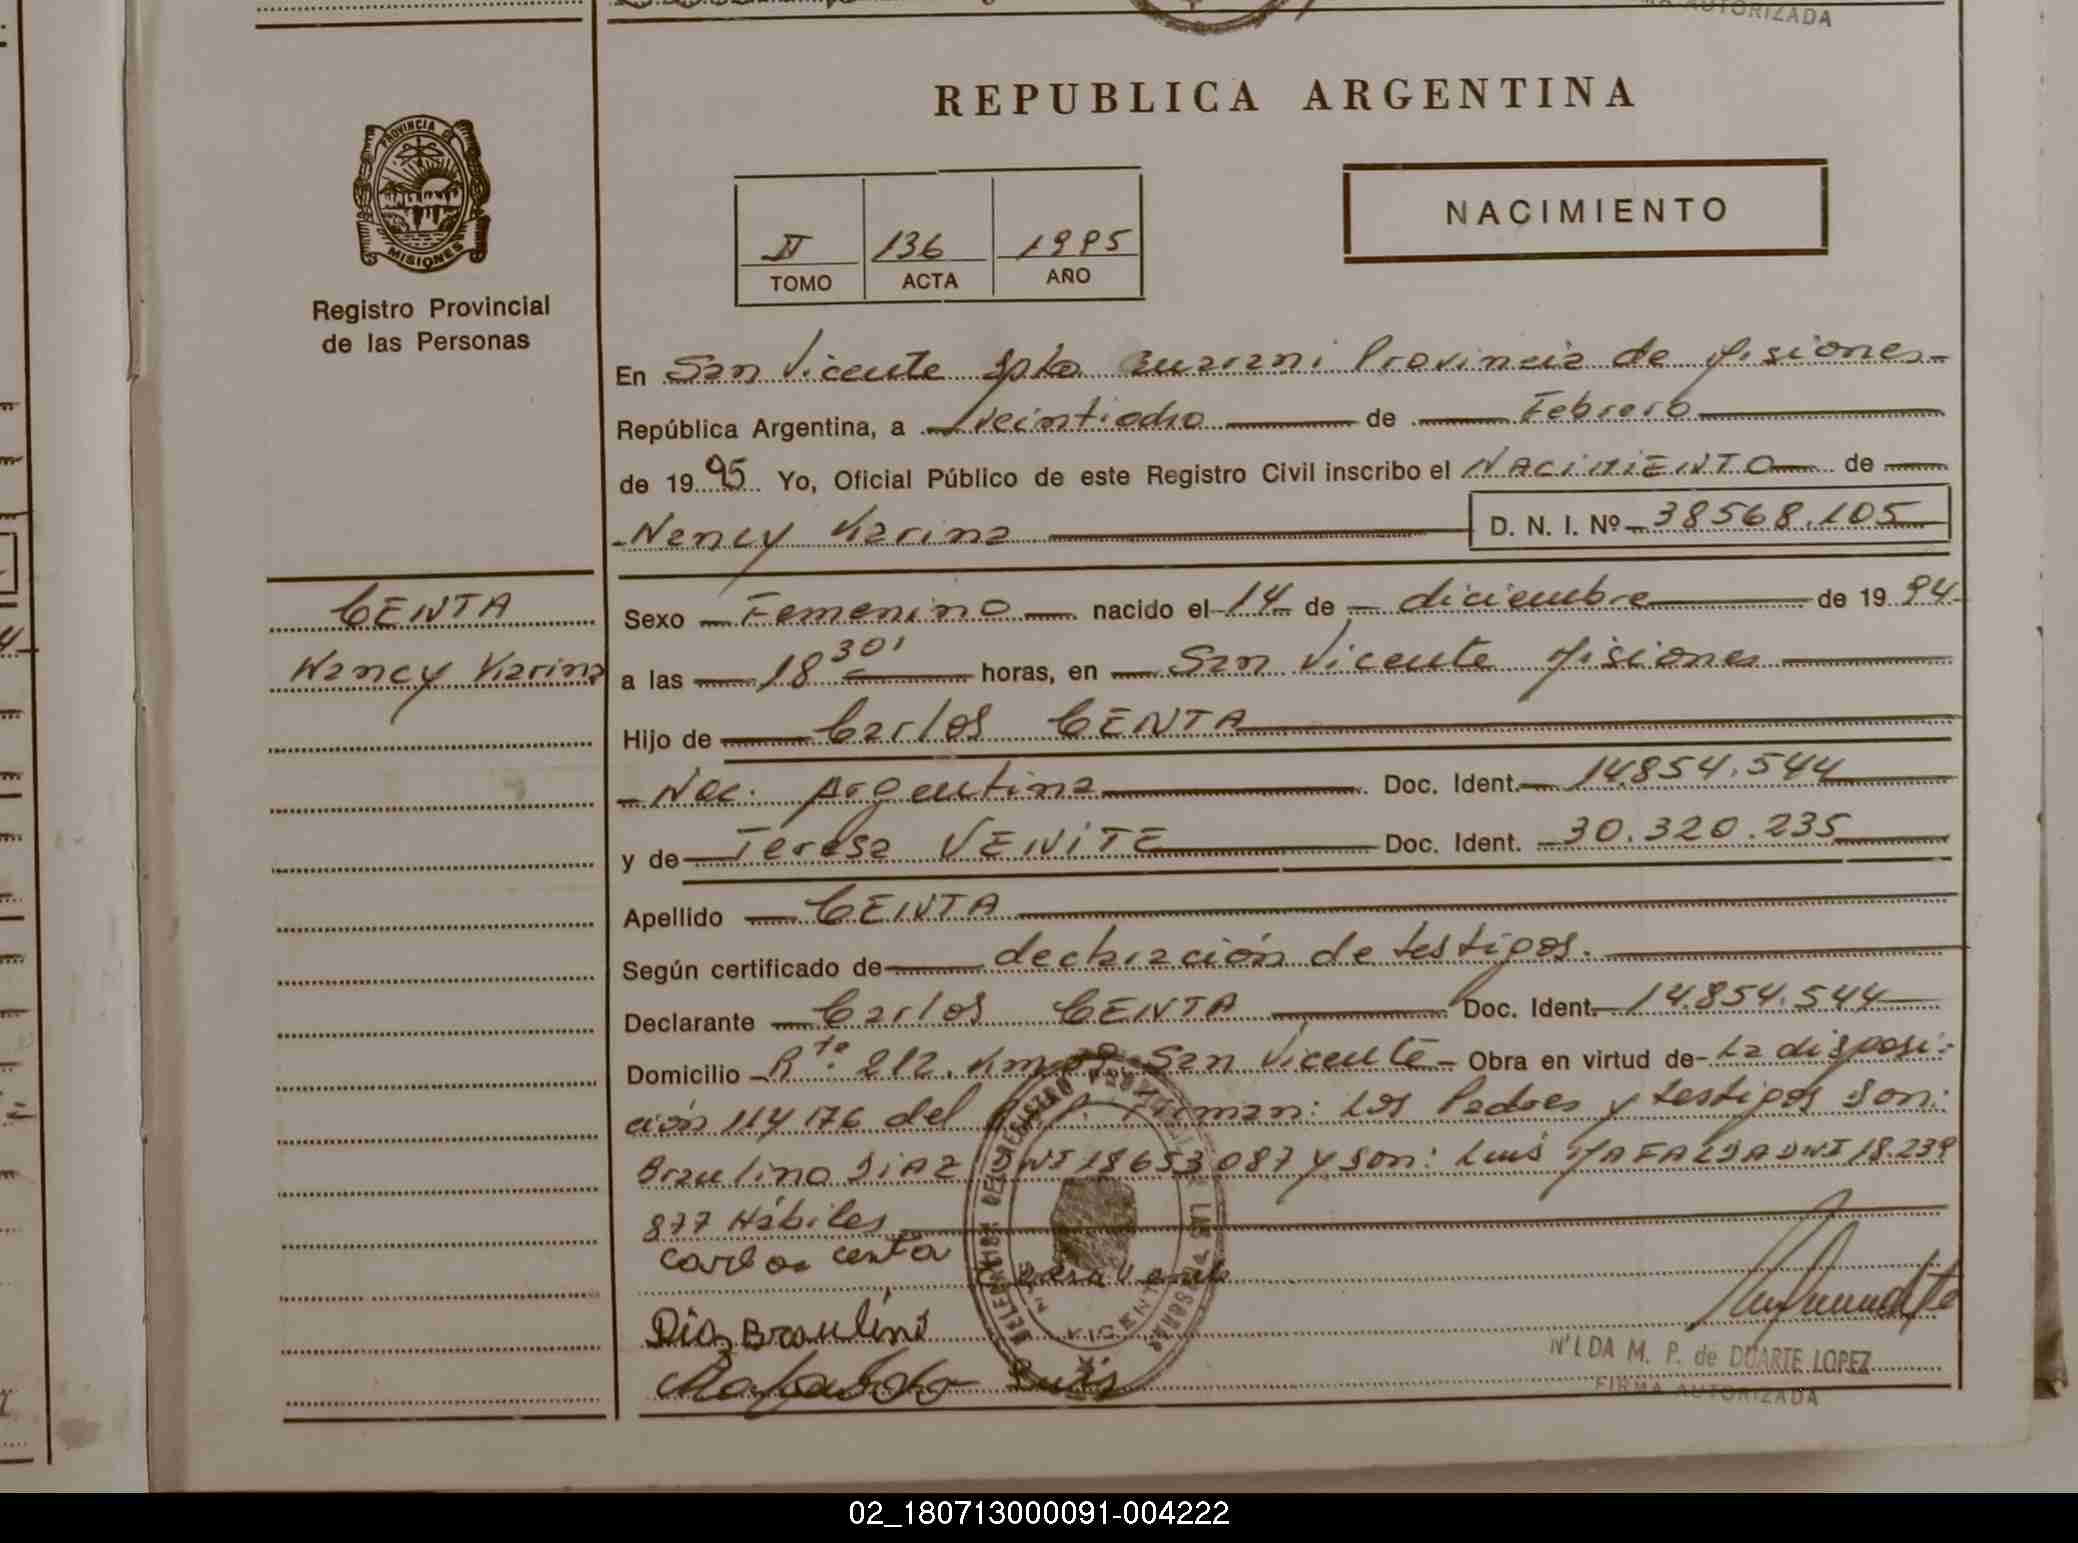 AUTORIZADA
REPUBLICA ARGENTINA
PROVINCIA DE
MISIONES
Registro Provincial
de las Personas
II 136 1995
TOMO ACTA AÑO
NACIMIENTO
En San Vicente Dpto Guarani Provincia de Misiones
República Argentina, a veintiocho de Febrero
de 1995 Yo, Oficial Público de este Registro Civil inscribo el NACIMIENTO de
Nancy Karina D. N. I. Nº 38568.105
CENTA
Nancy Karina
Sexo Femenino nacido el 14 de diciembre de 1994
a las 18 30' horas, en San Vicente Misiones
Hijo de Carlos CENTA
Nac. Argentina Doc. Ident. 14854.544
y de Teresa VENITE Doc. Ident. 30.320.235
Apellido CENTA
Según certificado de declaración de testigos.
Declarante Carlos CENTA Doc. Ident. 14.854.544
Domicilio Rta. 212. San Vicente Obra en virtud de La disposi-
ción 114/76 del Firman: Los Padres y testigos son:
Braulino DIAZ DNI 18653087 y son: Luis MAFALDA DNI 18.239
877 Hábiles
Carlos centa
Dias Braulino
Luis
DELEGACION DEL REGISTRO PROVINCIAL DE LAS PERSONAS
VICENTE
NILDA M. P. de DUARTE LOPEZ
FIRMA AUTORIZADA
02_180713000091-004222